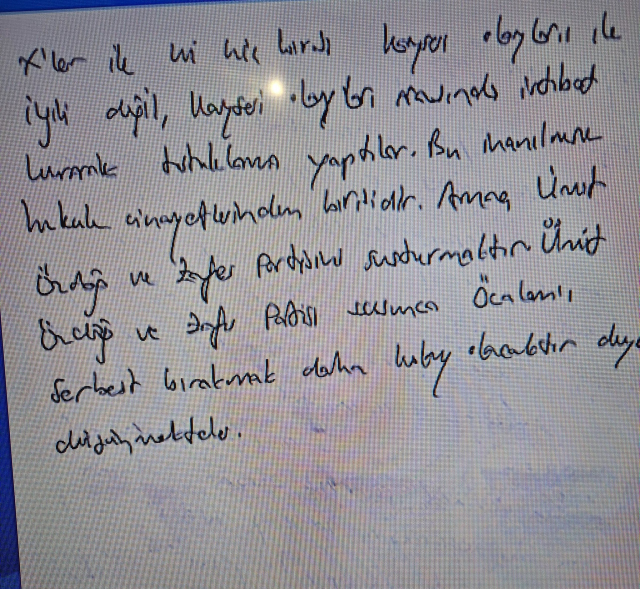 X'ler ile ki hiç birisi Kayseri olayları ile
ilgili değil, Kayseri olayları arasında irtibat
kurarak tutuklama yaptılar. Bu inanılmaz
hukuk cinayetlerinden birisidir. Amaç Ümit
Özdağ ve Zafer Partisini susturmaktır Ümit
Özdağ ve Zafer Partisi susunca Öcalanı
serbest bırakmak daha kolay olacaktır diye
düşünmekteler.